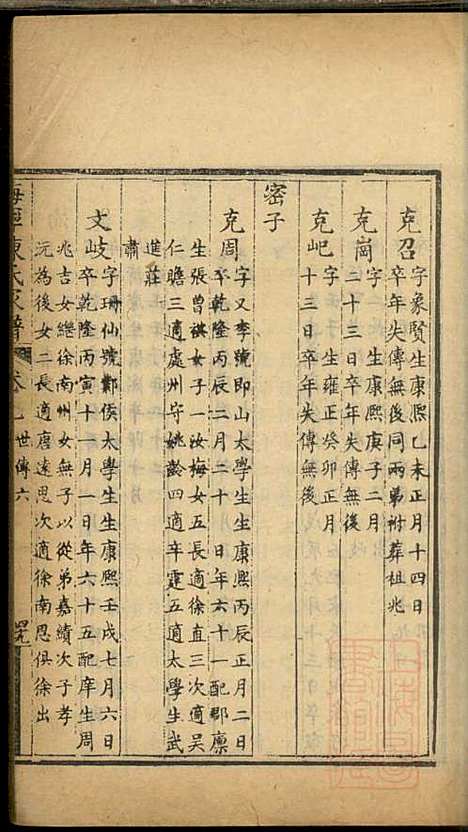 克召
字象賢生康熙乙未正月十四日
卒年失傳無後同兩弟祔葬祖兆
克崗
字 生康熙庚子二月
二十三日卒年失傳無後
克屺
字 生雍正癸卯正月
十三日卒年失傳無後
密子
克周
字又李號即山太學生生康熙丙辰正月二日
卒乾隆丙辰二月二十日年六十一配郡廩
生張曾祺女子一汝梅女五長適徐直三次適吳
仁瞻三適處州守姚 四適辛 五適太學生武
進莊
肅
文岐
字珊仙號鄴侯太學生生康熙壬戌七月六日
卒乾隆丙寅十一月一日年六十五配庠生周
兆吉女繼徐南州女無子以從弟嘉績次子孝
沅為後女二長適唐遠思次適徐南思俱徐出
海寧陳氏家譜
卷 世傳六